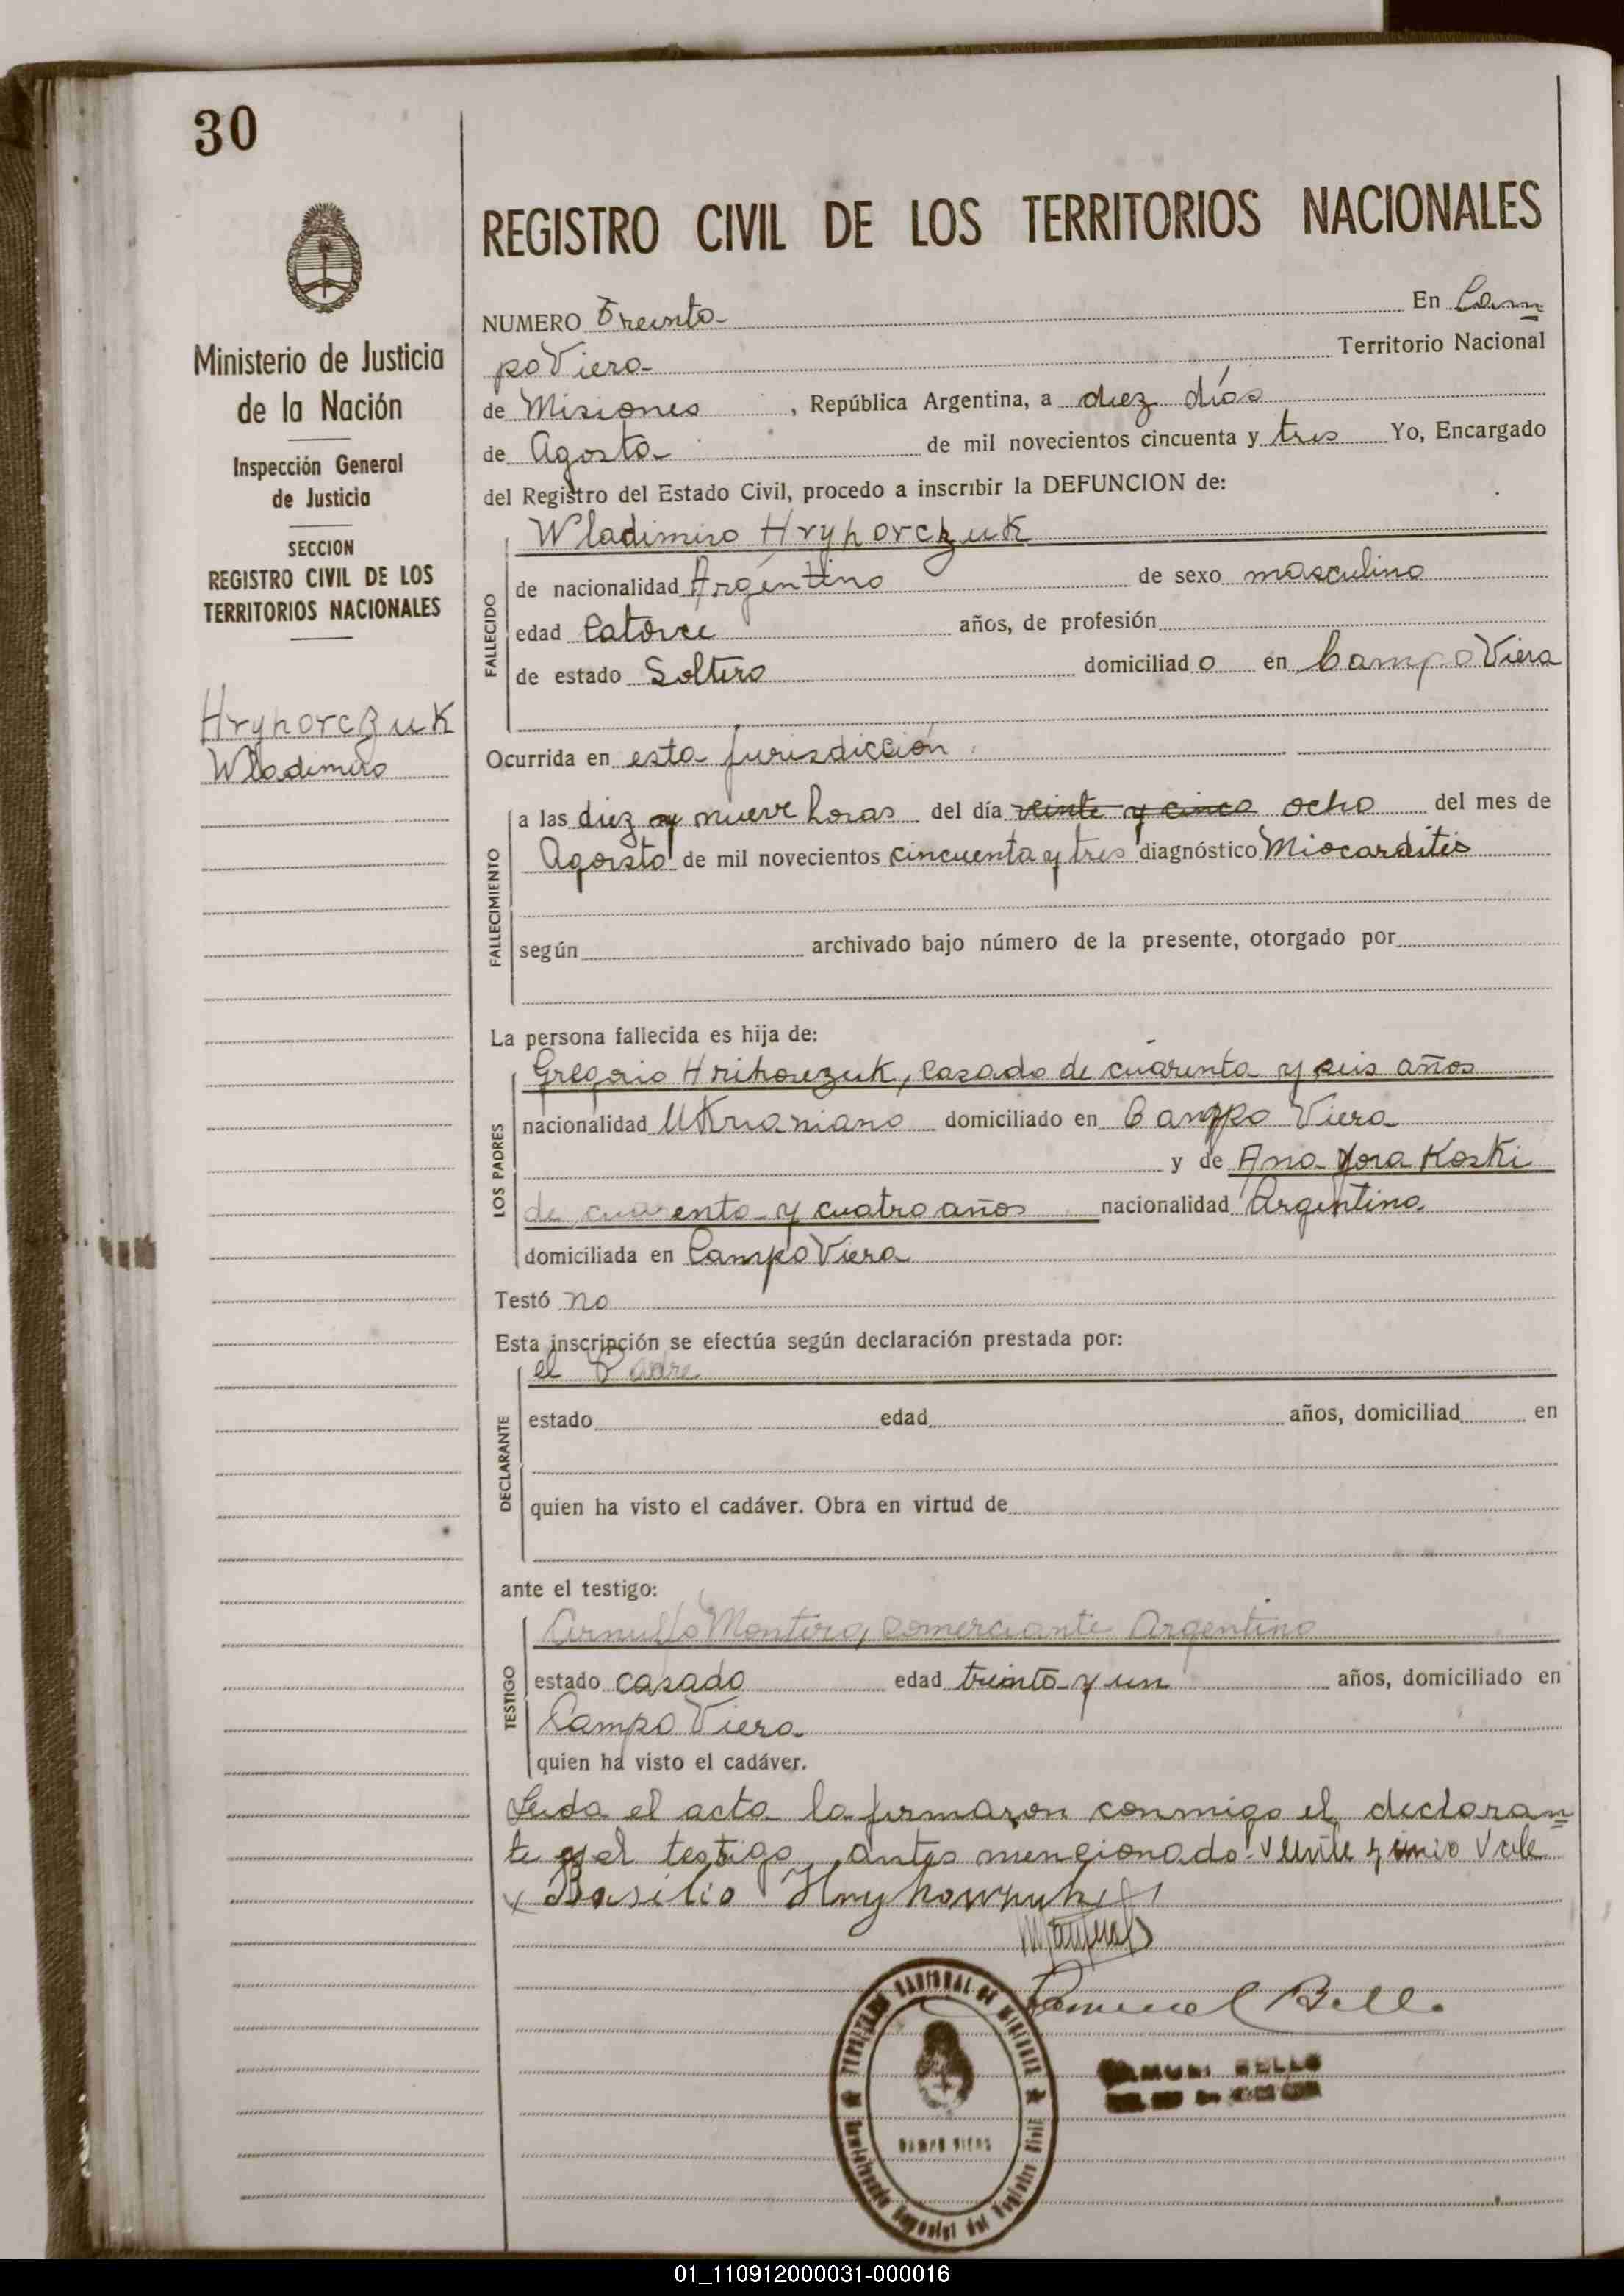 30
Ministerio de Justicia
de la Nación
Inspección General
de Justicia
SECCION
REGISTRO CIVIL DE LOS
TERRITORIOS NACIONALES
Hryhorczuk
Wladimiro
REGISTRO CIVIL DE LOS TERRITORIOS NACIONALES
NUMERO Treinta En Cam
po Viera Territorio Nacional
de Misiones, República Argentina, a diez días
de Agosto de mil novecientos cincuenta y tres Yo, Encargado
del Registro del Estado Civil, procedo a inscribir la DEFUNCION de:
FALLECIDO
Wladimiro Hryhorczuk
de nacionalidad Argentino de sexo masculino
edad Catorce años, de profesión
de estado Soltero domiciliado en Campo Viera
Ocurrida en esta jurisdicción
FALLECIMIENTO
a las diez y nueve horas del día veinte y cinco ocho del mes de
Agosto de mil novecientos cincuenta y tres diagnóstico Miocarditis
según archivado bajo número de la presente, otorgado por
La persona fallecida es hija de:
LOS PADRES
Gregorio Hrihorczuk, casado de cuarenta y seis años
nacionalidad Ukraniano domiciliado en Campo Viera
y de Ana Yora Koski
de cuarenta y cuatro años nacionalidad Argentina
domiciliada en Campo Viera
Testó no
Esta inscripción se efectúa según declaración prestada por:
DECLARANTE
el Padre
estado edad años, domiciliad en
quien ha visto el cadáver. Obra en virtud de
ante el testigo:
TESTIGO
Arnulfo Montero, comerciante Argentino
estado casado edad treinta y un años, domiciliado en
Campo Viera
quien ha visto el cadáver.
Leida el acta la firmaron conmigo el declaran
te y el testigo antes mencionado. veinte y cinco Vale
Basilio
Samuel Bello
SAMUEL BELLO
CAMPO VIERA
01_110912000031-000016